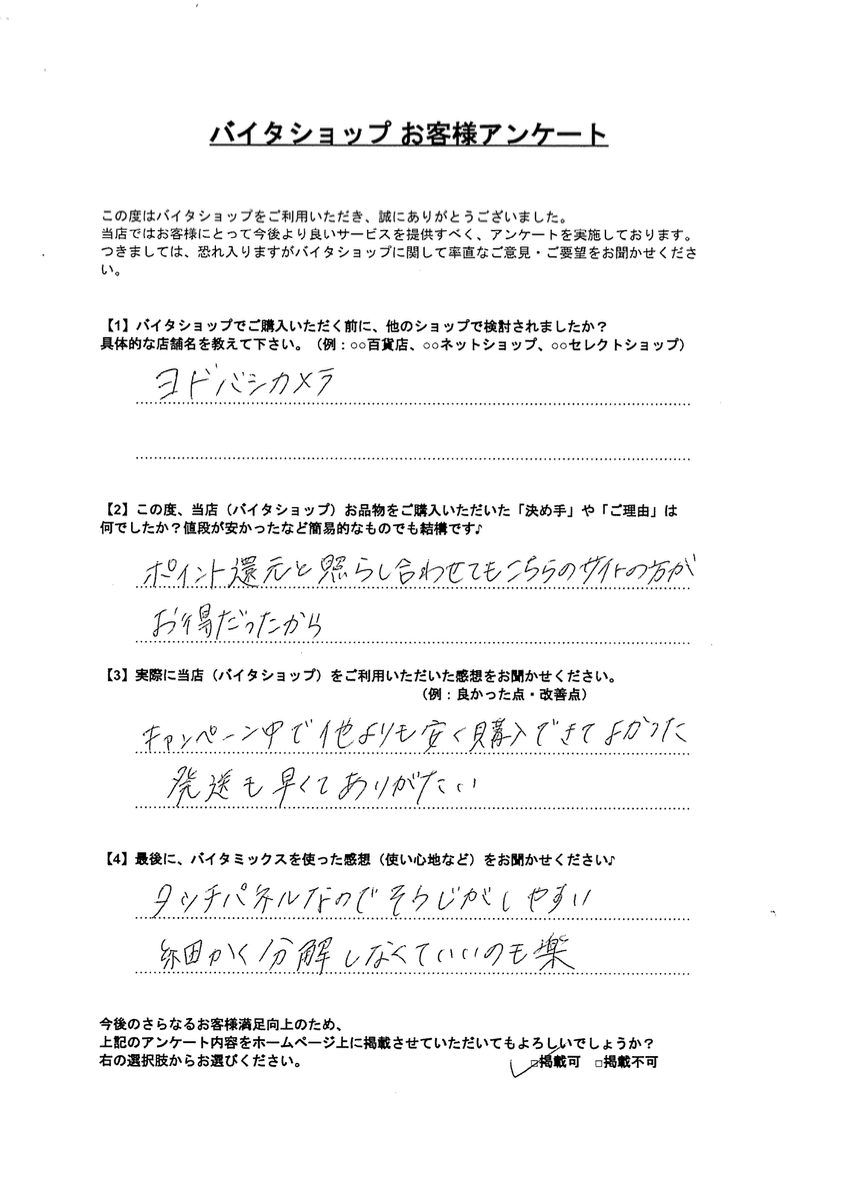 バイタショップ お客様アンケート
この度はバイタショップをご利用いただき、誠にありがとうございました。
当店ではお客様にとって今後より良いサービスを提供すべく、アンケートを実施しております。
つきましては、恐れ入りますがバイタショップに関して率直なご意見・ご要望をお聞かせくださ
い。
【1】バイタショップでご購入いただく前に、他のショップで検討されましたか？
具体的な店舗名を教えて下さい。（例：○○百貨店、○○ネットショップ、○○セレクトショップ）
ヨドバシカメラ
【2】この度、当店（バイタショップ）お品物をご購入いただいた「決め手」や「ご理由」は
何でしたか？値段が安かったなど簡易的なものでも結構です♪
ポイント還元と照らし合わせてもこちらのサイトの方が
お得だったから
【3】実際に当店（バイタショップ）をご利用いただいた感想をお聞かせください。
（例：良かった点・改善点）
キャンペーン中で他よりも安く購入できてよかった
発送も早くてありがたい
【4】最後に、バイタミックスを使った感想（使い心地など）をお聞かせください♪
タッチパネルなのでそうじがしやすい
細かく分解しなくていいのも楽
今後のさらなるお客様満足向上のため、
上記のアンケート内容をホームページ上に掲載させていただいてもよろしいでしょうか？
右の選択肢からお選びください。 ✓□掲載可 □掲載不可